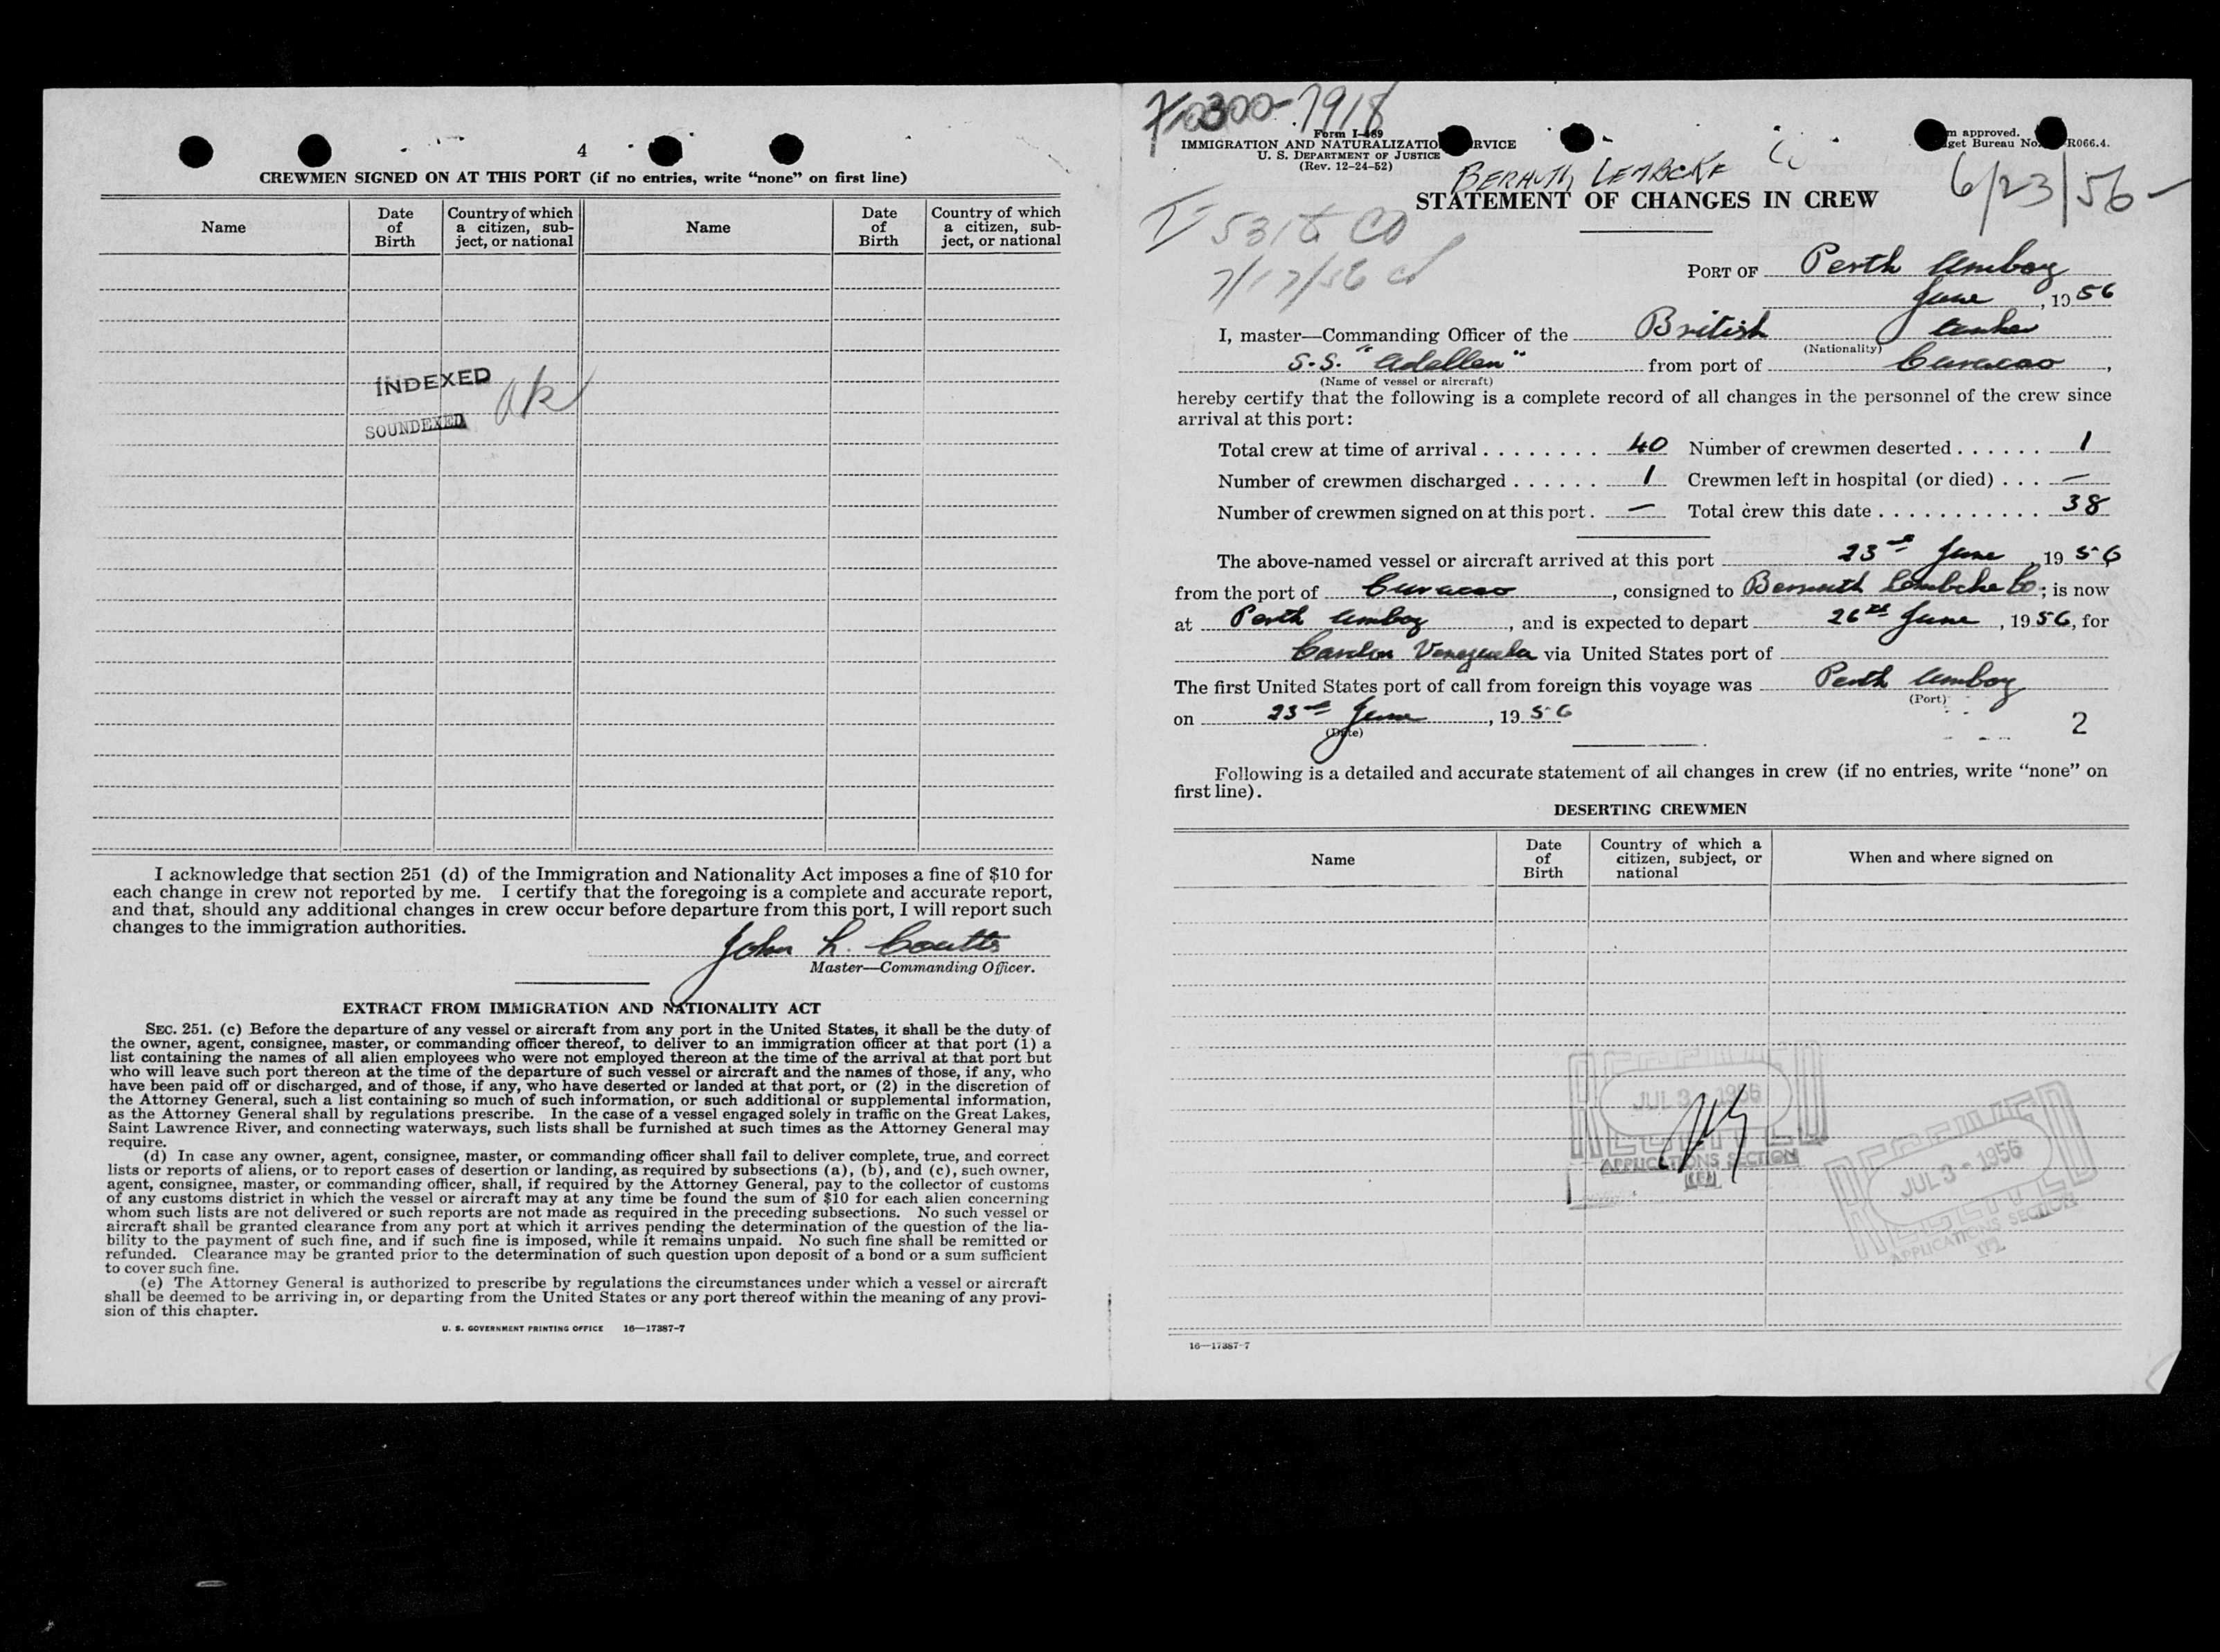 4
CREWMEN SIGNED ON AT THIS PORT (if no entries, write “none” on first line)
Name
Date of Birth
Country of which a citizen, subject, or national
Name
Date of Birth
Country of which a citizen, subject, or national
INDEXED
SOUNDEXED
ok
I acknowledge that section 251 (d) of the Immigration and Nationality Act imposes a fine of $10 for
each change in crew not reported by me. I certify that the foregoing is a complete and accurate report,
and that, should any additional changes in crew occur before departure from this port, I will report such
changes to the immigration authorities.
John L. Coutts
Master—Commanding Officer.
EXTRACT FROM IMMIGRATION AND NATIONALITY ACT
SEC. 251. (c) Before the departure of any vessel or aircraft from any port in the United States, it shall be the duty of
the owner, agent, consignee, master, or commanding officer thereof, to deliver to an immigration officer at that port (1) a
list containing the names of all alien employees who were not employed thereon at the time of the arrival at that port but
who will leave such port thereon at the time of the departure of such vessel or aircraft and the names of those, if any, who
have been paid off or discharged, and of those, if any, who have deserted or landed at that port, or (2) in the discretion of
the Attorney General, such a list containing so much of such information, or such additional or supplemental information,
as the Attorney General shall by regulations prescribe. In the case of a vessel engaged solely in traffic on the Great Lakes,
Saint Lawrence River, and connecting waterways, such lists shall be furnished at such times as the Attorney General may
require.
(d) In case any owner, agent, consignee, master, or commanding officer shall fail to deliver complete, true, and correct
lists or reports of aliens, or to report cases of desertion or landing, as required by subsections (a), (b), and (c), such owner,
agent, consignee, master, or commanding officer, shall, if required by the Attorney General, pay to the collector of customs
of any customs district in which the vessel or aircraft may at any time be found the sum of $10 for each alien concerning
whom such lists are not delivered or such reports are not made as required in the preceding subsections. No such vessel or
aircraft shall be granted clearance from any port at which it arrives pending the determination of the question of the lia-
bility to the payment of such fine, and if such fine is imposed, while it remains unpaid. No such fine shall be remitted or
refunded. Clearance may be granted prior to the determination of such question upon deposit of a bond or a sum sufficient
to cover such fine.
(e) The Attorney General is authorized to prescribe by regulations the circumstances under which a vessel or aircraft
shall be deemed to be arriving in, or departing from the United States or any port thereof within the meaning of any provi-
sion of this chapter.
U. S. GOVERNMENT PRINTING OFFICE 16—17387-7
0300-7918
Form I-489
IMMIGRATION AND NATURALIZATIO RVICE
U. S. DEPARTMENT OF JUSTICE
(Rev. 12-24-52)
m approved.
get Bureau No. R066.4.
LEMBCKE Co
6/23/56-
STATEMENT OF CHANGES IN CREW
7/17/56
PORT OF Perth Amboy
June, 1956
I, master—Commanding Officer of the British tanker
(Nationality)
S.S. "Adellen" from port of Curacao,
(Name of vessel or aircraft)
hereby certify that the following is a complete record of all changes in the personnel of the crew since
arrival at this port:
Total crew at time of arrival . . . . . . . . 40 Number of crewmen deserted . . . . . . 1
Number of crewmen discharged . . . . . . 1 Crewmen left in hospital (or died) . . . —
Number of crewmen signed on at this port . — Total crew this date . . . . . . . . . . . 38
The above-named vessel or aircraft arrived at this port 23rd June, 1956
from the port of Curacao, consigned to Bernuth Lembcke Co; is now
at Perth Amboy, and is expected to depart 26th June, 1956, for
Cardon Venezuela via United States port of
The first United States port of call from foreign this voyage was Perth Amboy
(Port)
on 23rd June, 1956
(Date)
2
Following is a detailed and accurate statement of all changes in crew (if no entries, write “none” on
first line).
DESERTING CREWMEN
Name
Date of Birth
Country of which a citizen, subject, or national
When and where signed on
RECEIVED
JUL 3 - 1956
APPLICATIONS SECTION
RECEIVED
JUL 3 - 1956
APPLICATIONS SECTION
16—17387-7